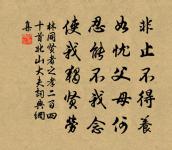 非止不得養
如忱父母何
忍能不我念
使我獨賢勞
林同賢者之孝二百四
十首北山大夫詞典網